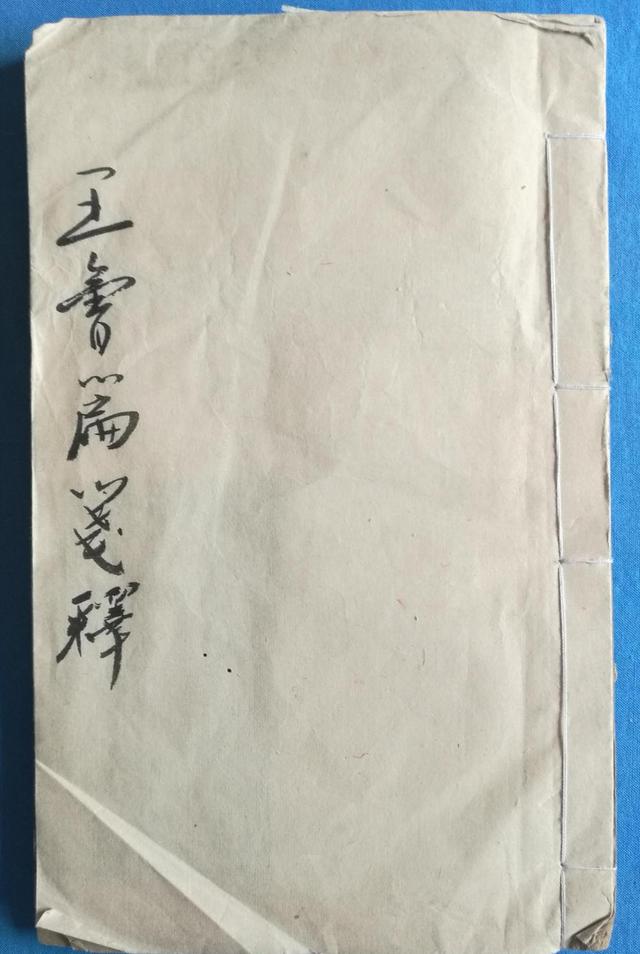 王會篇箋釋